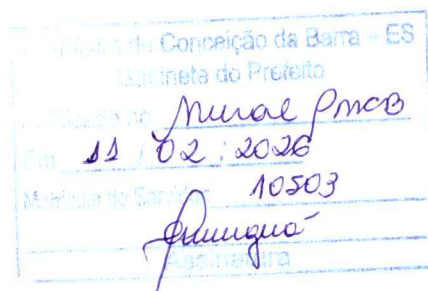 de Conceição da Barra - ES
Gabinete do Prefeito
Mural PMCB
Em 11 / 02 / 2026
Matrícula do Servidor 10503
Assinatura